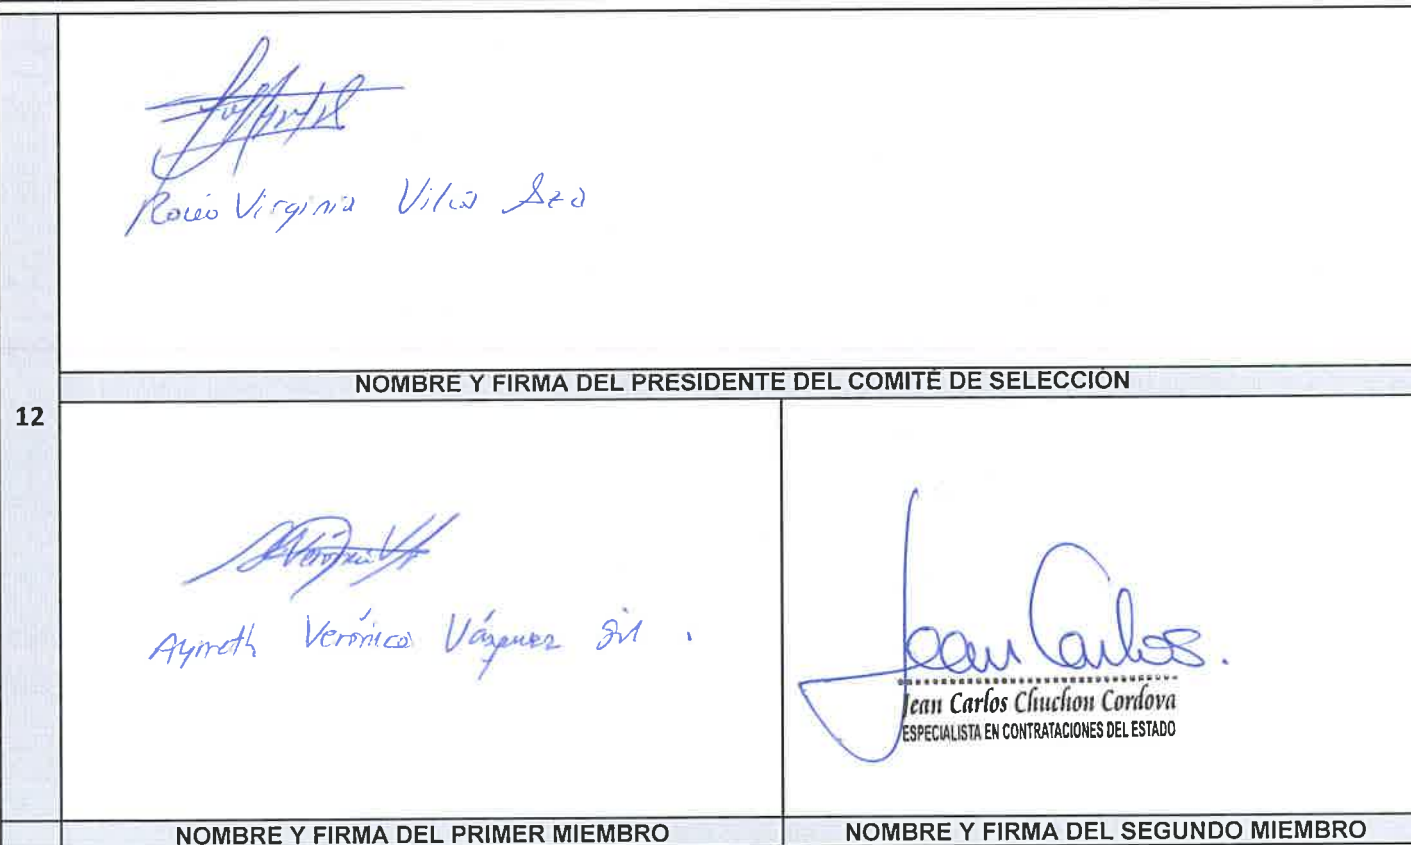 Rocio Virginia Vilca
NOMBRE Y FIRMA DEL PRESIDENTE DEL COMITÉ DE SELECCIÓN
12
Verónica Vásquez
Jean Carlos.
Jean Carlos Chuchon Cordova
ESPECIALISTA EN CONTRATACIONES DEL ESTADO
NOMBRE Y FIRMA DEL PRIMER MIEMBRO
NOMBRE Y FIRMA DEL SEGUNDO MIEMBRO